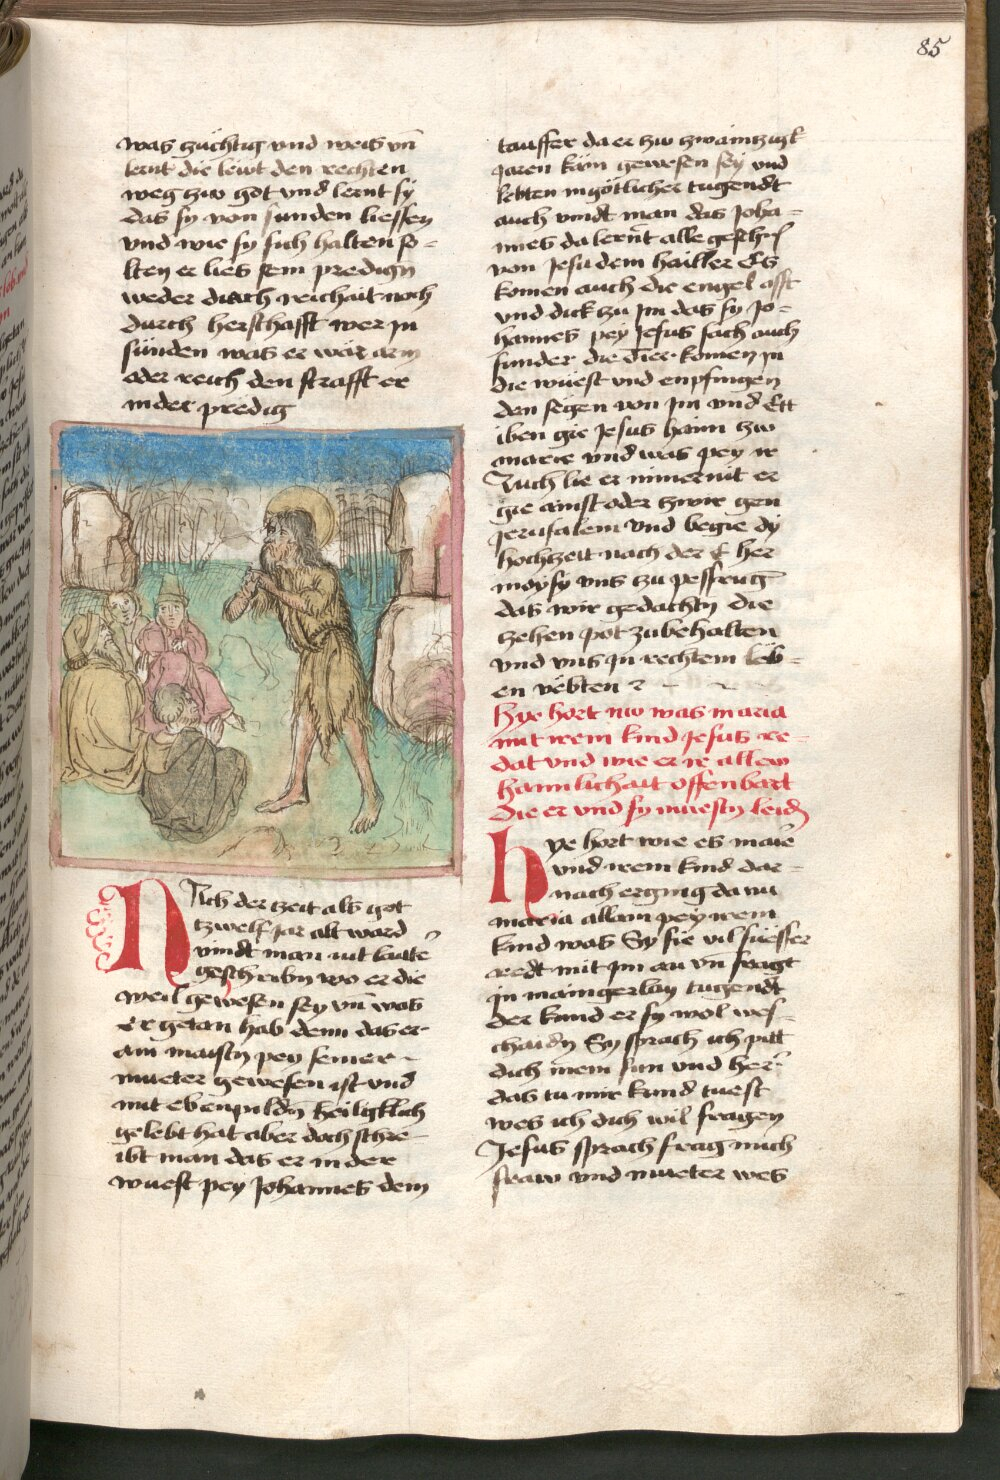 85
was züchtig vnd weis vn̄
lernt die lewt den rechten
weg zw got vnd lernt sy
das sy von sunden liessen
vnd wie sy sich halten so =
lten er lies sein predign
weder durch reichait noch
durch herschafft wer jn
sünden was er wär arm
oder reich den strafft er
in der predig
Nach der tzeit als got
tzwelf jar alt ward
vindt man nit lautē
geschribn wo er die
weil gewesen sey vn̄ was
er getan hab denn das er
am maistn pey seiner
mueter gewesen ist vnd
mit ebenpildn heiligklich
gelebt hat aber doch schre
ibt man das er in der
wuest pey Johannes dem
tauffer da er zw zwaintzigk
jaren küm gewesen sey vnd
lebten in götlicher tugendt
auch vindt man das Joha =
nnes da lernt alle geschrf
von Jesu dem hailler Es
komen auch die engel offt
vnd dick zu jm das sy Jo =
hannes pey Jesus sach auch
sunder die Tier komen jn
die wüest vnd enpfingen
den segen von jm vnd Ett
iben gie Jesus haim zw
marie vnd was pey ir
Auch lie er nimer nit er
gie ainst oder zwir gen
Jerusalem vnd begie dy
hochzeit nach der E her
moysy vns zu pessrug
das wir gedachtn die
zehen pot zubehalten
vnd vns jn rechtem leb =
en vebten
Hye hort nw was maria
mit irem kind Jesus re =
dat vnd wie er ir allew
haimlichait offenbart
die er vnd sy muestn leidn
Hye hort wie es marie
vnd irem kind dar =
nach erging da nu
maria allain pey irem
kind was Sy sie vil süesser
redt mit jm an vn̄ fragt
jn maingerlay tugendt
der kund er sy wol wes =
chaidn Sy sprach ich pitt
dich mein sun vnd her
das tu mir kund tuest
wes ich dich wil fragen
Jesus sprach frag mich
fraw vnd mueter wes